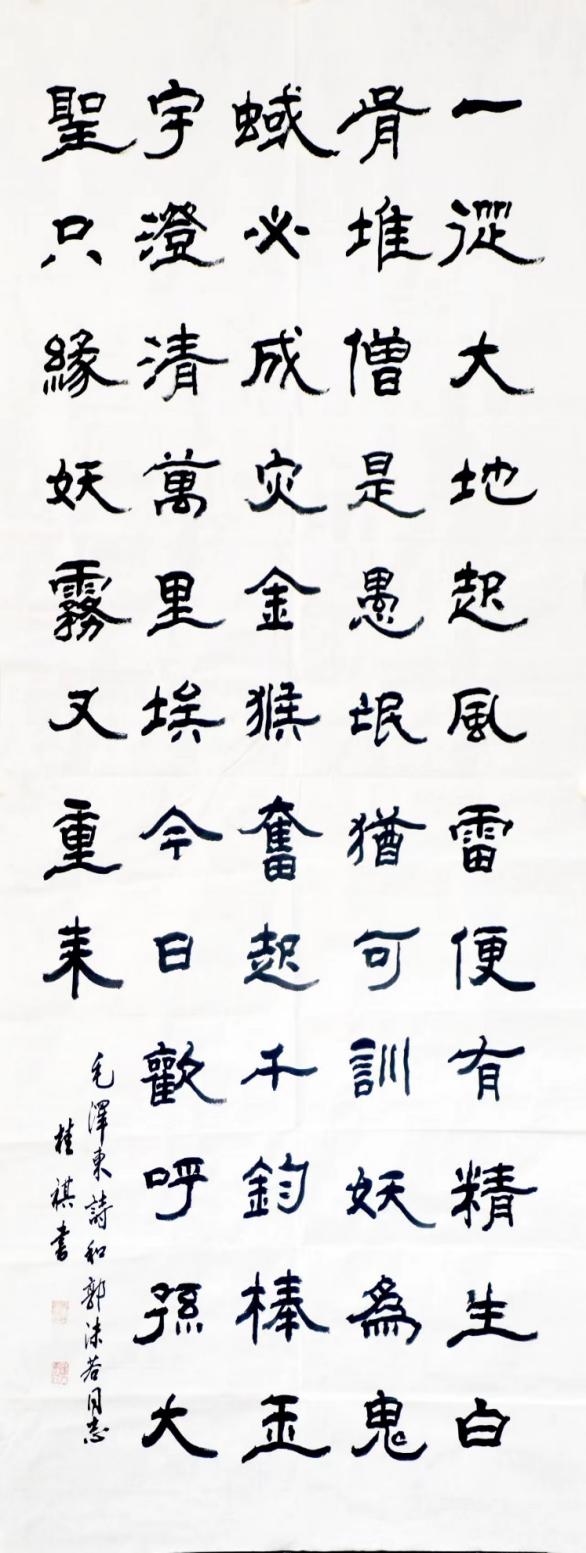 一從大地起風雷便有精生白
骨堆僧是愚氓猶可訓妖為鬼
蜮必成灾金猴奮起千鈞棒玉
宇澄清萬里埃今日歡呼孫大
聖只緣妖霧又重来
毛澤東詩和郭沫若同志
桂祺書